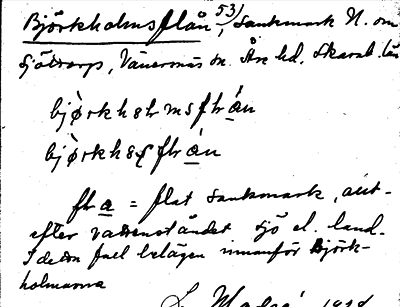 Björkholmsflån 53), sankmark N. om
Sjötorp, Vänersnäs sn. Åse hd. Skarab. län
bjòrkholmsflrán
bjòrkhosflrán
fla = flat sankmark, allt-
efter vattenståndet sjö el. land.
I detta fall belägen innanför Björk-
holmarna